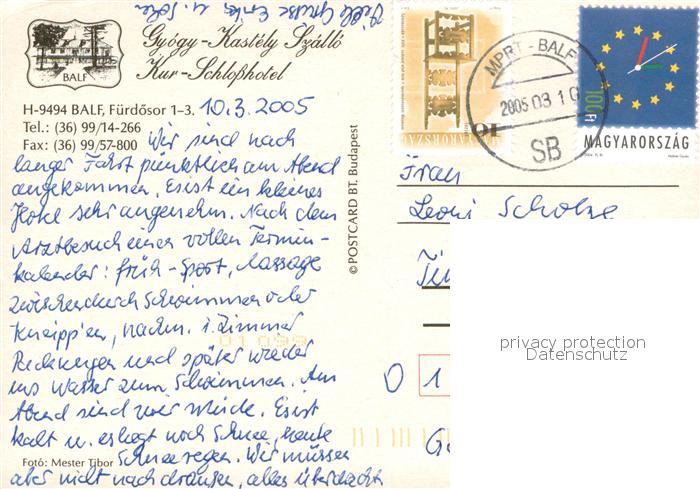 Viele Grüße Erika u.
Gyógy-Kastély Szálló
Kur-Schloßhotel
BALF
H-9494 BALF, Fürdősor 1-3. 10.3.2005
Tel.: (36) 99/14-266
Fax: (36) 99/57-800 Wir sind nach
langer Fahrt pünktlich am Abend
angekommen. Es ist ein kleines
Hotel sehr angenehm. Nach dem
Arztbesuch einen vollen Termin-
kalender: früh-Sport, Massage
zwischendurch Schwimmen oder
Kneipp'en, nachm. i. Zimmer
Packungen und später wieder
ins Wasser zum Schwimmen. Am
Abend sind wir müde. Es ist
kalt u. es liegt noch Schnee, heute
Schneeregen. Wir müssen
aber nicht nach draußen, alles überdacht
Fotó: Mester Tibor
01099
© POSTCARD BT. Budapest
MAGYARORSZÁG
10
MPRT-BALF
2005 03 10
SB
100 Ft
MAGYARORSZÁG
Frau
Leoni Scholze
0 1
privacy protection
Datenschutz